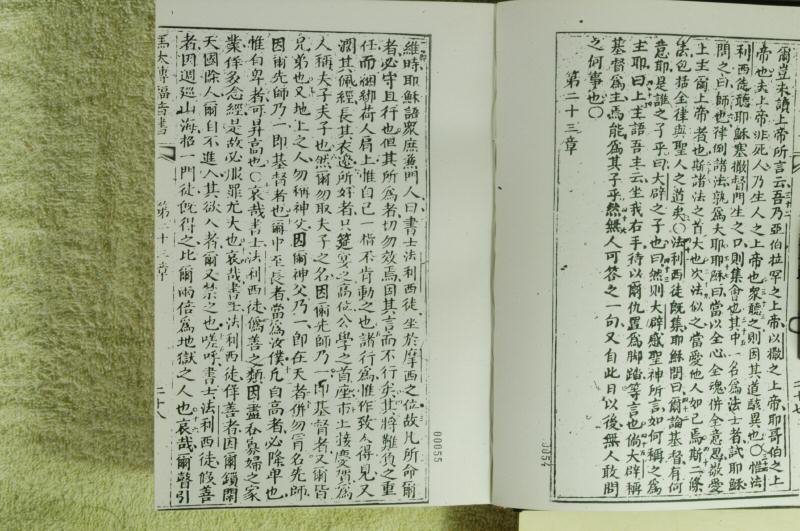 爾豈未讀上帝所言云吾乃亞伯拉罕之上帝以撒之上帝耶哥伯之上
帝也夫上帝非死人乃生人之上帝也衆聽之則因其道駭異也〇惟法
利西徒聽耶穌塞撒督門生之口則集會也其中一名為法士者試耶穌
問之曰師也律例諸法孰為大耶耶穌曰當以全心全魂併全意思敬愛
上主爾上帝者也斯諸法之首大也次法似之當愛他人如己焉斯二條
法包括全律與聖人之道矣〇法利西徒既集耶穌問曰爾論基督有何
意耶是誰之子乎曰大辟之子也曰然則大辟感聖神所言如何稱之為
主耶曰上主語吾主云坐我右手待以爾仇置為脚踏等言也倘大辟稱
基督為主焉能為其子乎然無人可答之一句又自此日以後無人敢問
之何事也〇
第二十三章
0054
維時耶穌語衆庶無門人曰書士法利西徒坐於摩西之位故凡所命爾
者必守且行也但其所為者切勿效焉因其言而不行矣其將難負之重
任而捆綁荷人肩上惟自己一指不肯動之也諸行為惟作致人得見又
濶其佩經長其衣邊所好者只筵宴之高位公學之首座市上接慶賀為
人稱夫子夫子也然爾勿取夫子之名因爾先師乃一即基督者又爾皆
兄弟也又地上之人勿稱神父因爾神父乃一即在天者併勿冐名先師
因爾先師乃一即基督者也爾中至長者當為汝僕凡自高者必降卑也
惟自卑者可昇高也〇哀哉書士法利西徒僞善之類因盡吞寡婦之家
業佯多念經是故必服罪尤大也哀哉書士法利西徒佯善者因爾鎖閉
天國除人爾自不進入其欲入者爾又禁之也嗟呼書士法利西徒假善
者因週廵山海招一門徒既得之比爾兩倍為地獄之人也哀哉爾瞽引
馬太傳福音書
第二十三章
二十八
00055